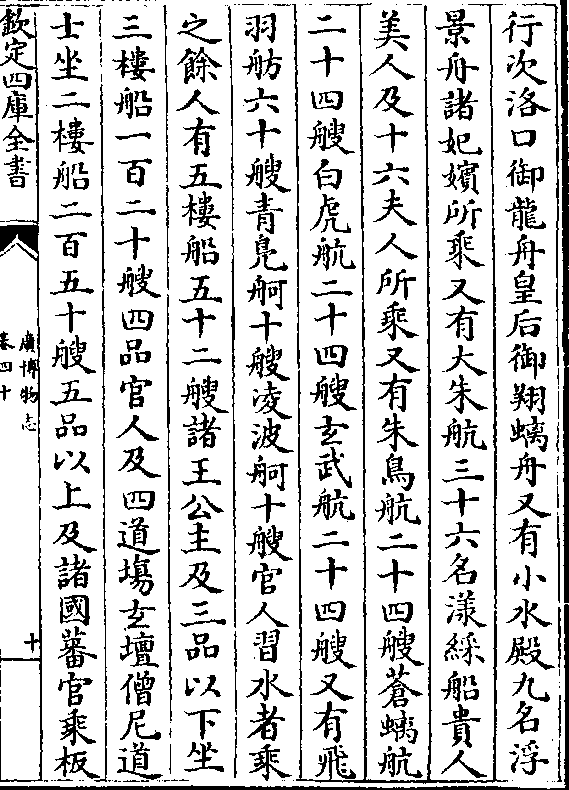 行次洛口御龍舟皇后御翔螭舟又有小水殿九名浮
景舟諸妃嬪所乘又有大朱航三十六名漾綵船貴人
美人及十六夫人所乘又有朱鳥航二十四艘蒼螭航
二十四艘白虎航二十四艘玄武航二十四艘又有飛
羽舫六十艘青鳧舸十艘凌波舸十艘官人習水者乘
之餘人有五樓船五十二艘諸王公主及三品以下坐
三樓船一百二十艘四品官人及四道塲玄壇僧尼道
士坐二樓船二百五十艘五品以上及諸國蕃官乘板
欽定四庫全書
廣博物志
卷四十
十